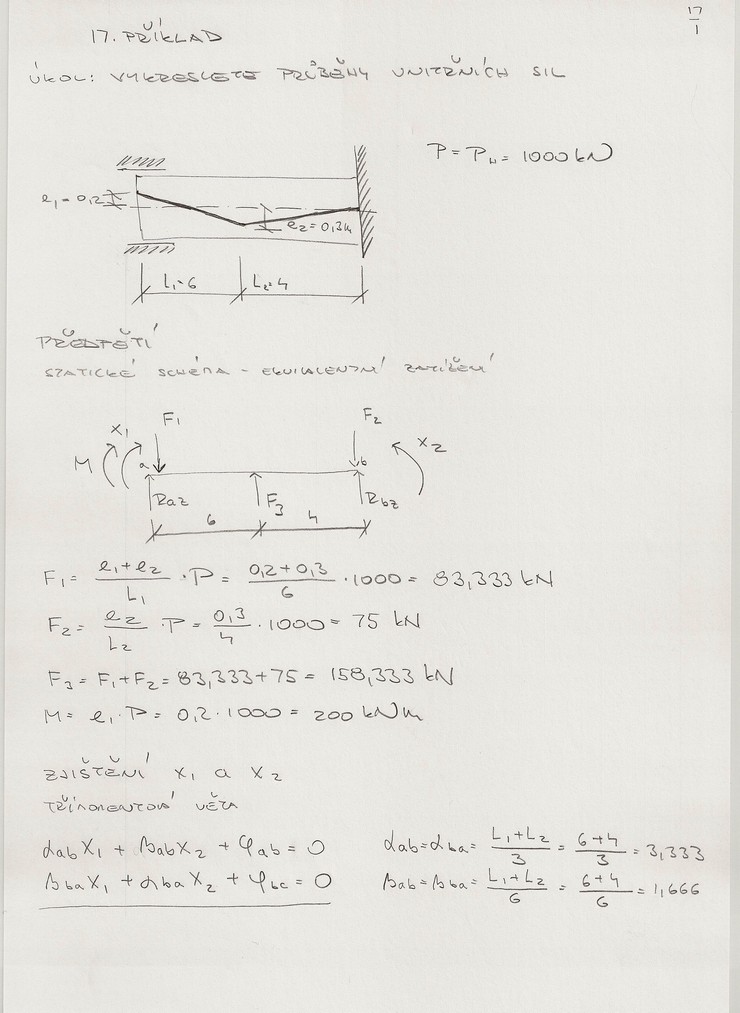 17
1
17. PŘÍKLAD
ÚKOL: VYKRESLETE PRŮBĚHY VNITŘNÍCH SIL
P = P∞ = 1000 kN
e₁ = 0,2
e₂ = 0,3m
L₁=6 L₂=4
PŘEDPĚTÍ
STATICKÉ SCHÉMA - EKVIVALENTNÍ ZATÍŽENÍ
F₁ F₂
X₁ X₂
M a b
Raz F₃ Rbz
6 4
F₁ = (e₁+e₂)/L₁ · P = (0,2+0,3)/6 · 1000 = 83,333 kN
F₂ = e₂/L₂ · P = 0,3/4 · 1000 = 75 kN
F₃ = F₁+F₂ = 83,333+75 = 158,333 kN
M = e₁·P = 0,2·1000 = 200 kNm
ZJIŠTĚNÍ X₁ a X₂
TŘÍMOMENTOVÁ VĚTA
αab X₁ + βab X₂ + φab = 0 αab=αba = (L₁+L₂)/3 = (6+4)/3 = 3,333
βba X₁ + αba X₂ + φbc = 0 βab=βba = (L₁+L₂)/6 = (6+4)/6 = 1,666